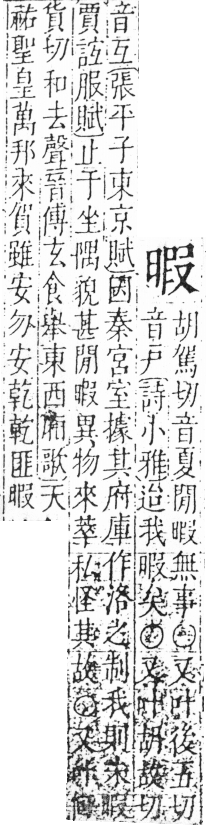 暇
胡駕切音夏閒暇無事〇又叶後五切
音戸詩小雅迨我暇矣〇又叶胡故切
音互張平子東京賦因秦宮室據其府庫作洛之制我則未暇
賈誼服賦止于坐隅貌甚閒暇異物來萃私怪其故〇又叶何
貨切和去聲晉傅玄食舉東西廂歌天
祐聖皇萬邦來賀雖安勿安乾乾匪暇